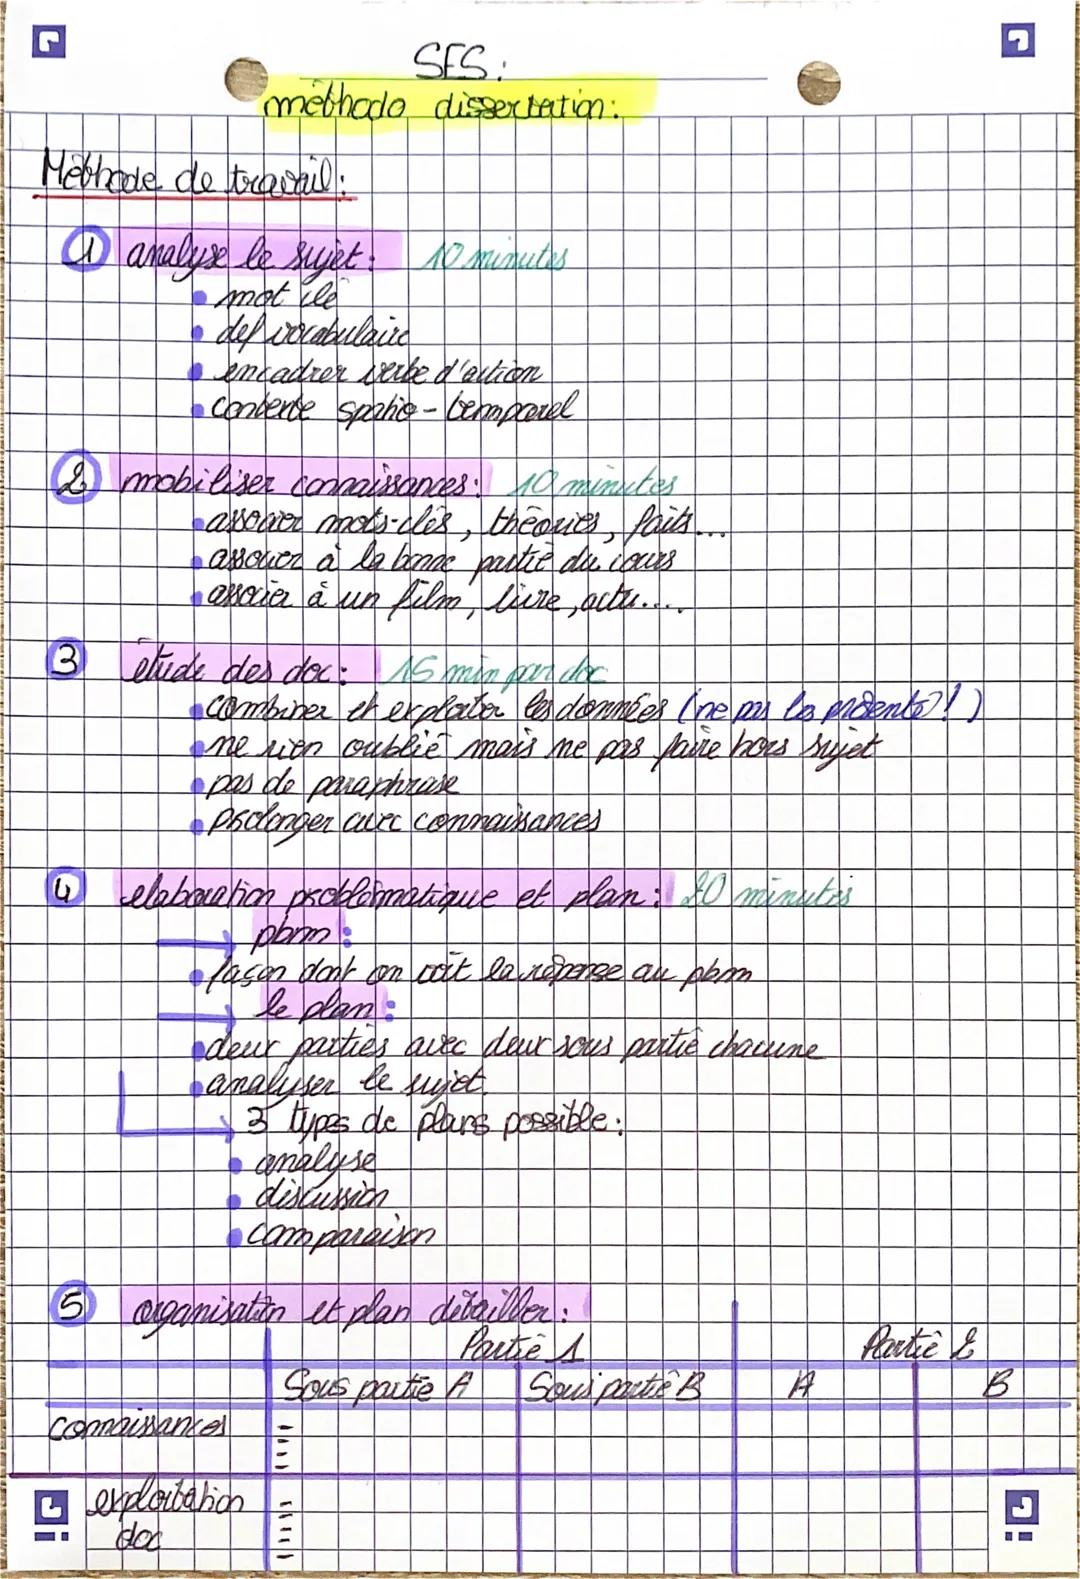 SES:
méthodo dissertation:
Méthode de travail:
1 analyse le sujet: 10 minutes
• mot clé
• def vocabulaire
• encadrer verbe d'action
• contexte spatio-temporel
2 mobiliser connaissances: 10 minutes
• associer mots-clés, théories, faits...
• associer à la bonne partie du cours
• associer à un film, livre, actu....
3 étude des doc: 15 min par doc
• combiner et exploiter les données (ne pas les présenté!)
• ne rien oublié mais ne pas faire hors sujet
• pas de paraphrase
• prolonger avec connaissances
4 elaboration problématique et plan: 20 minutes
→ pbm:
• façon dont on voit la réponse au pbm
→ le plan:
• deux parties avec deux sous partie chacune
• analyser le sujet.
→ 3 types de plans possible:
• analyse
• discussion
• comparaison
5 organisation et plan détailler:
Partie 1 Partie 2
Sous partie A Sous partie B A B
connaissances
exploitation
doc